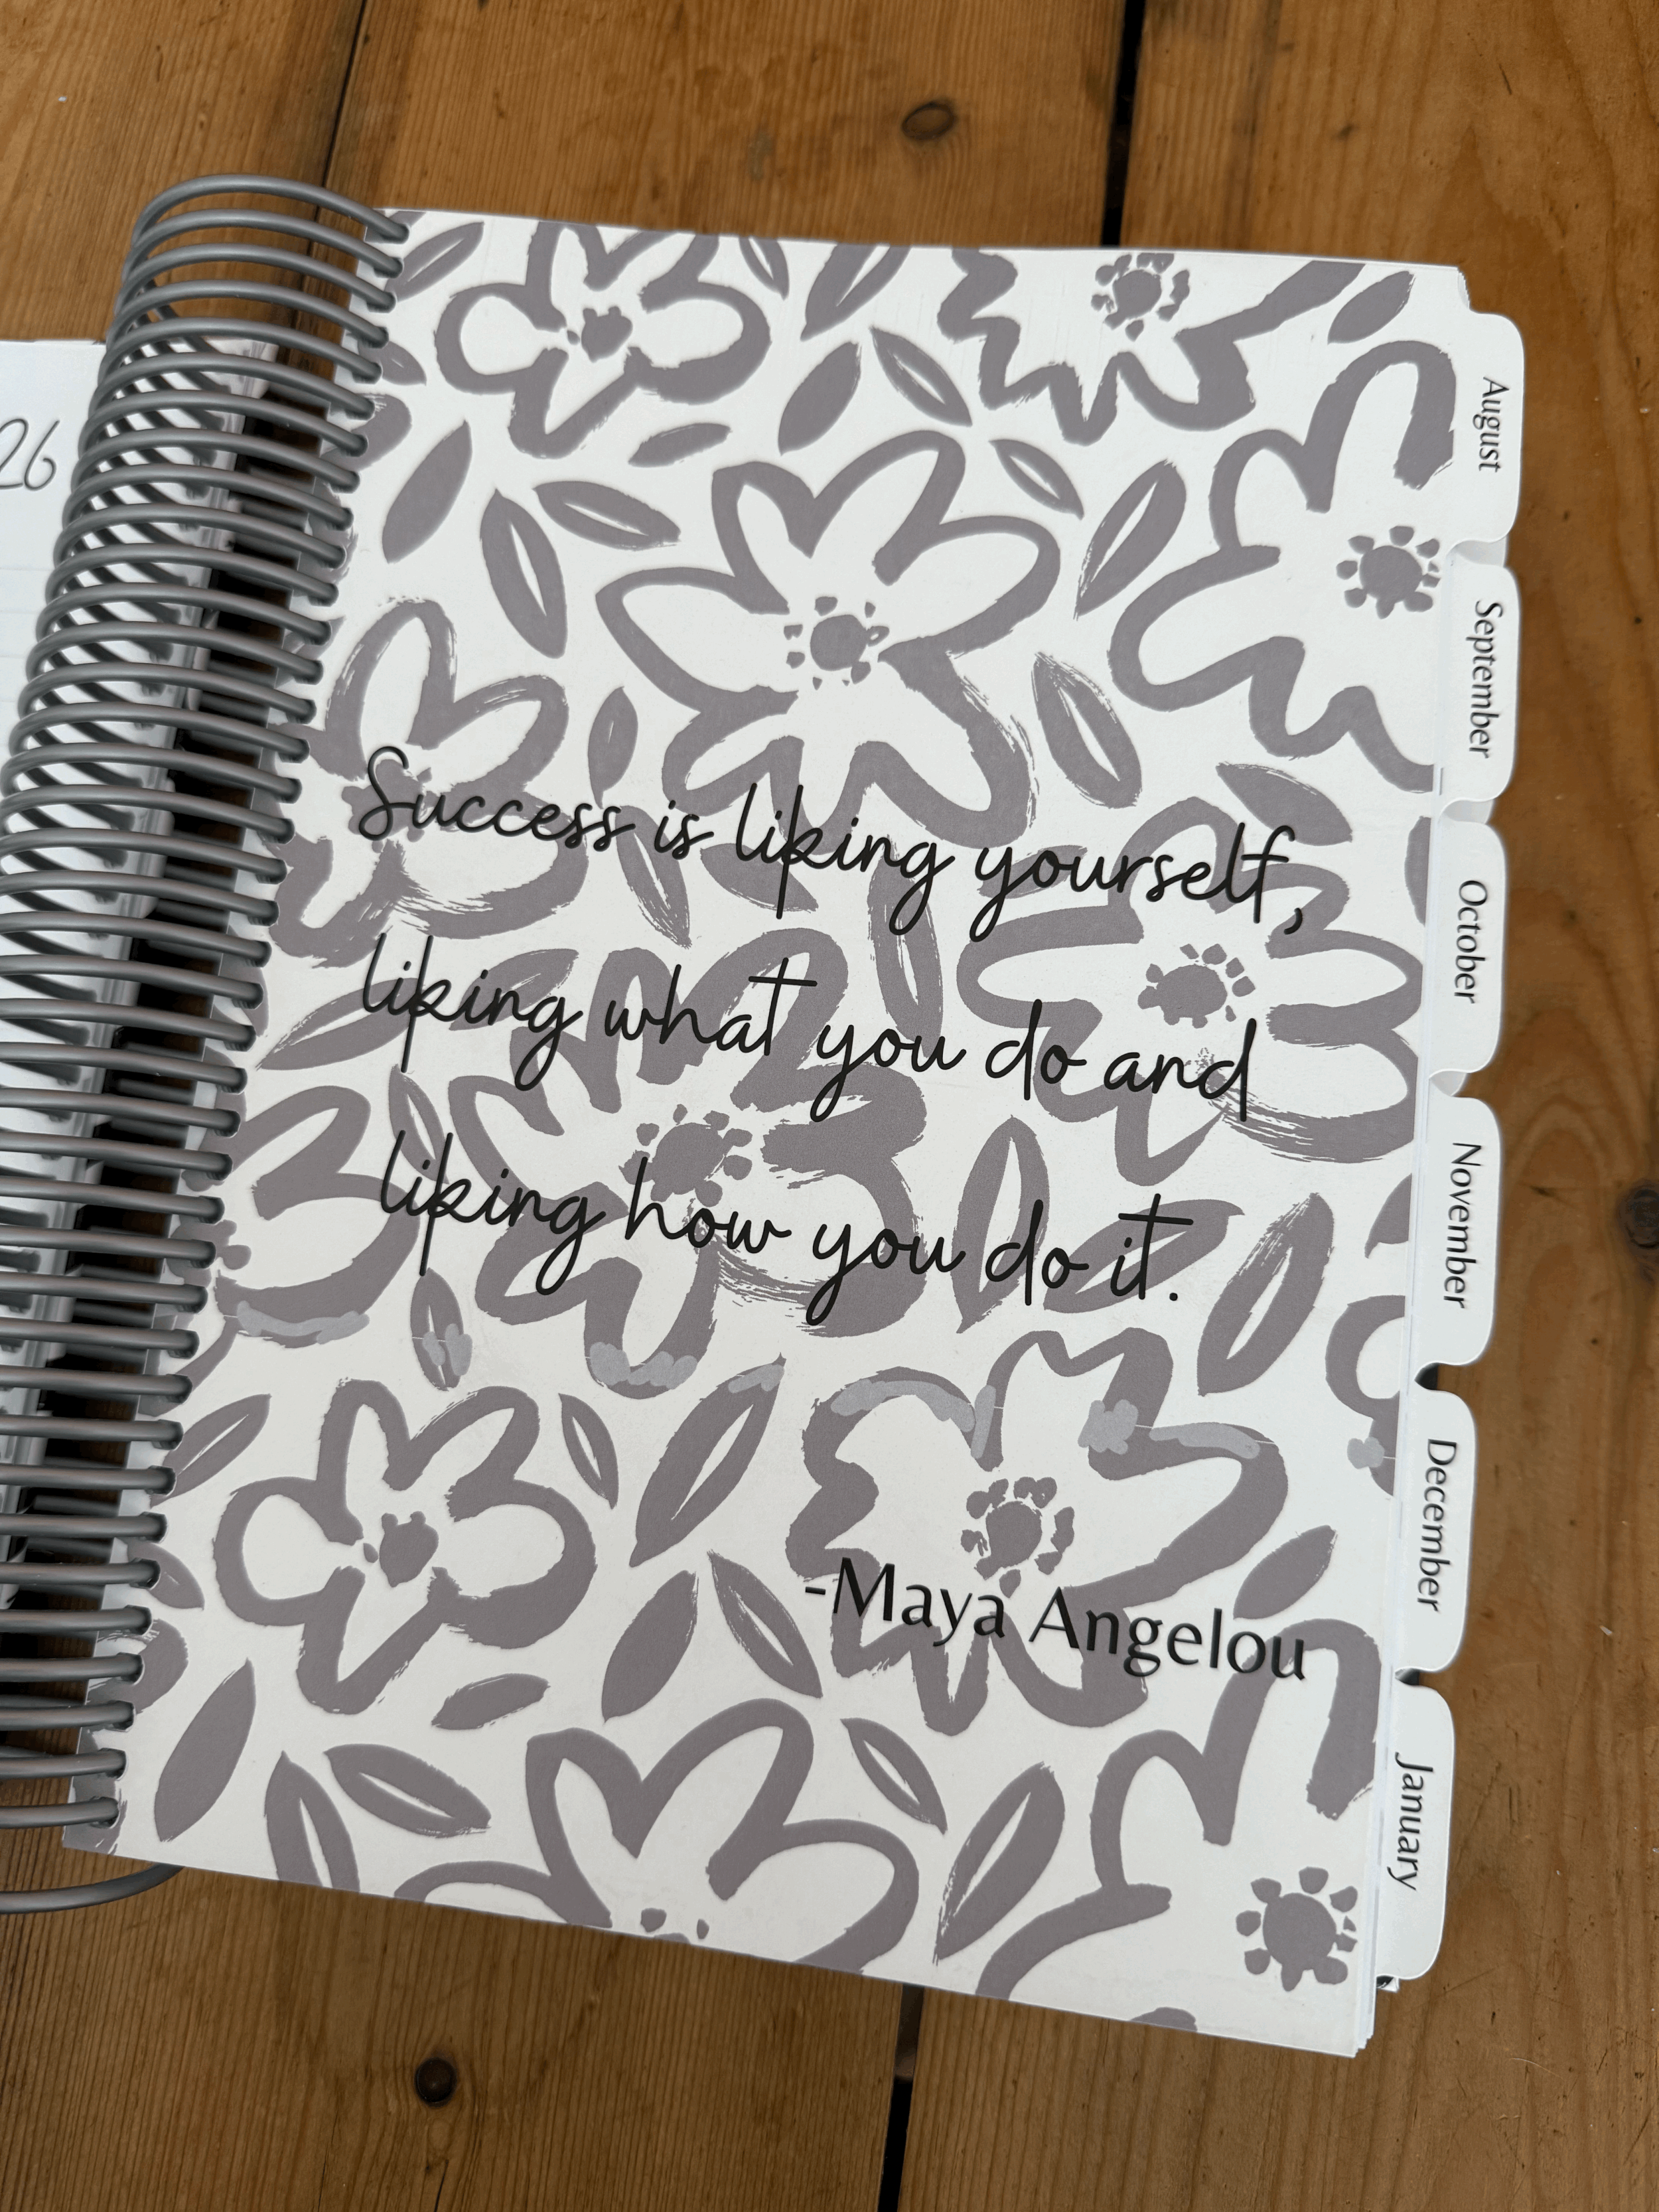 26
Success is liking yourself,
liking what you do and
liking how you do it.
-Maya Angelou
August
September
October
November
December
January